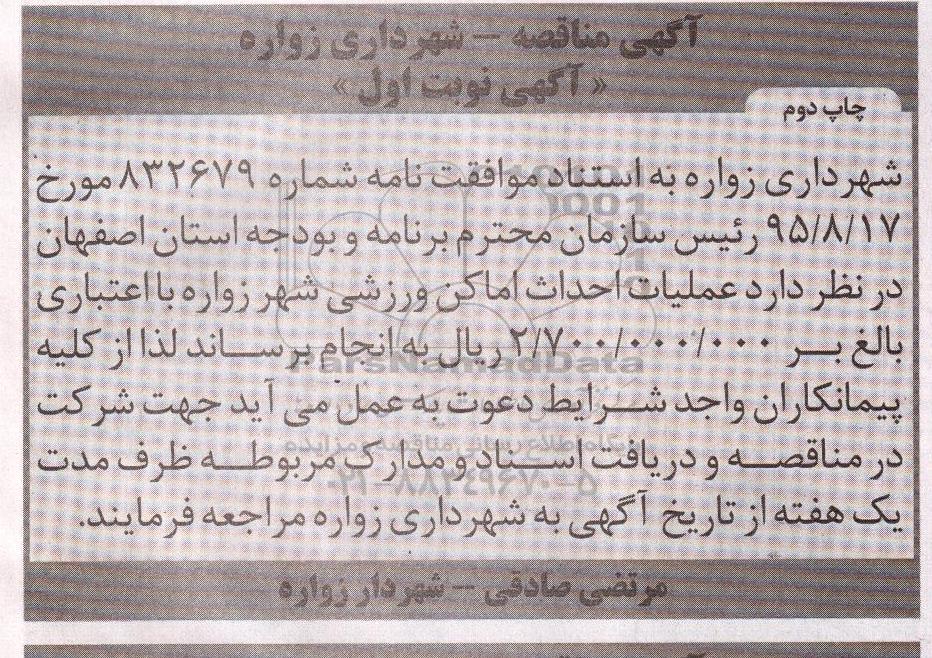 آگهی مناقصه – شهرداری زواره
« آگهی نوبت اول »
چاپ دوم
شهرداری زواره به استناد موافقت نامه شماره ۸۳۲۶۷۹ مورخ
۹۵/۸/۱۷ رئیس سازمان محترم برنامه و بودجه استان اصفهان
در نظر دارد عملیات احداث اماکن ورزشی شهر زواره با اعتباری
بالغ بر ۲/۷۰۰/۰۰۰/۰۰۰ ریال به انجام برساند لذا از کلیه
پیمانکاران واجد شرایط دعوت به عمل می آید جهت شرکت
در مناقصه و دریافت اسناد و مدارک مربوطه ظرف مدت
یک هفته از تاریخ آگهی به شهرداری زواره مراجعه فرمایند.
مرتضی صادقی – شهردار زواره
ParsNamadData
پایگاه اطلاع رسانی مناقصه و مزایده
۰۲۱-۸۸۳۴۹۶۷۰-۵